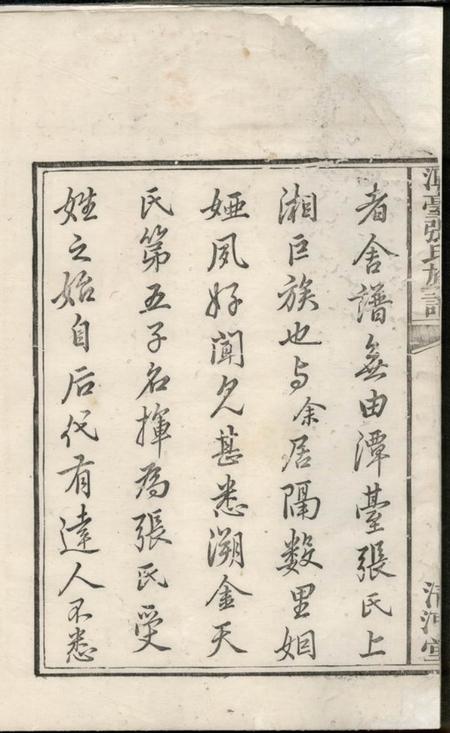 潭臺張氏族譜
清河堂
者舍譜無由潭臺張氏上
湘巨族也与余居隔数里姻
婭夙好聞見甚悉溯金天
氏第五子名揮為張氏受
姓之始自后代有達人不悉